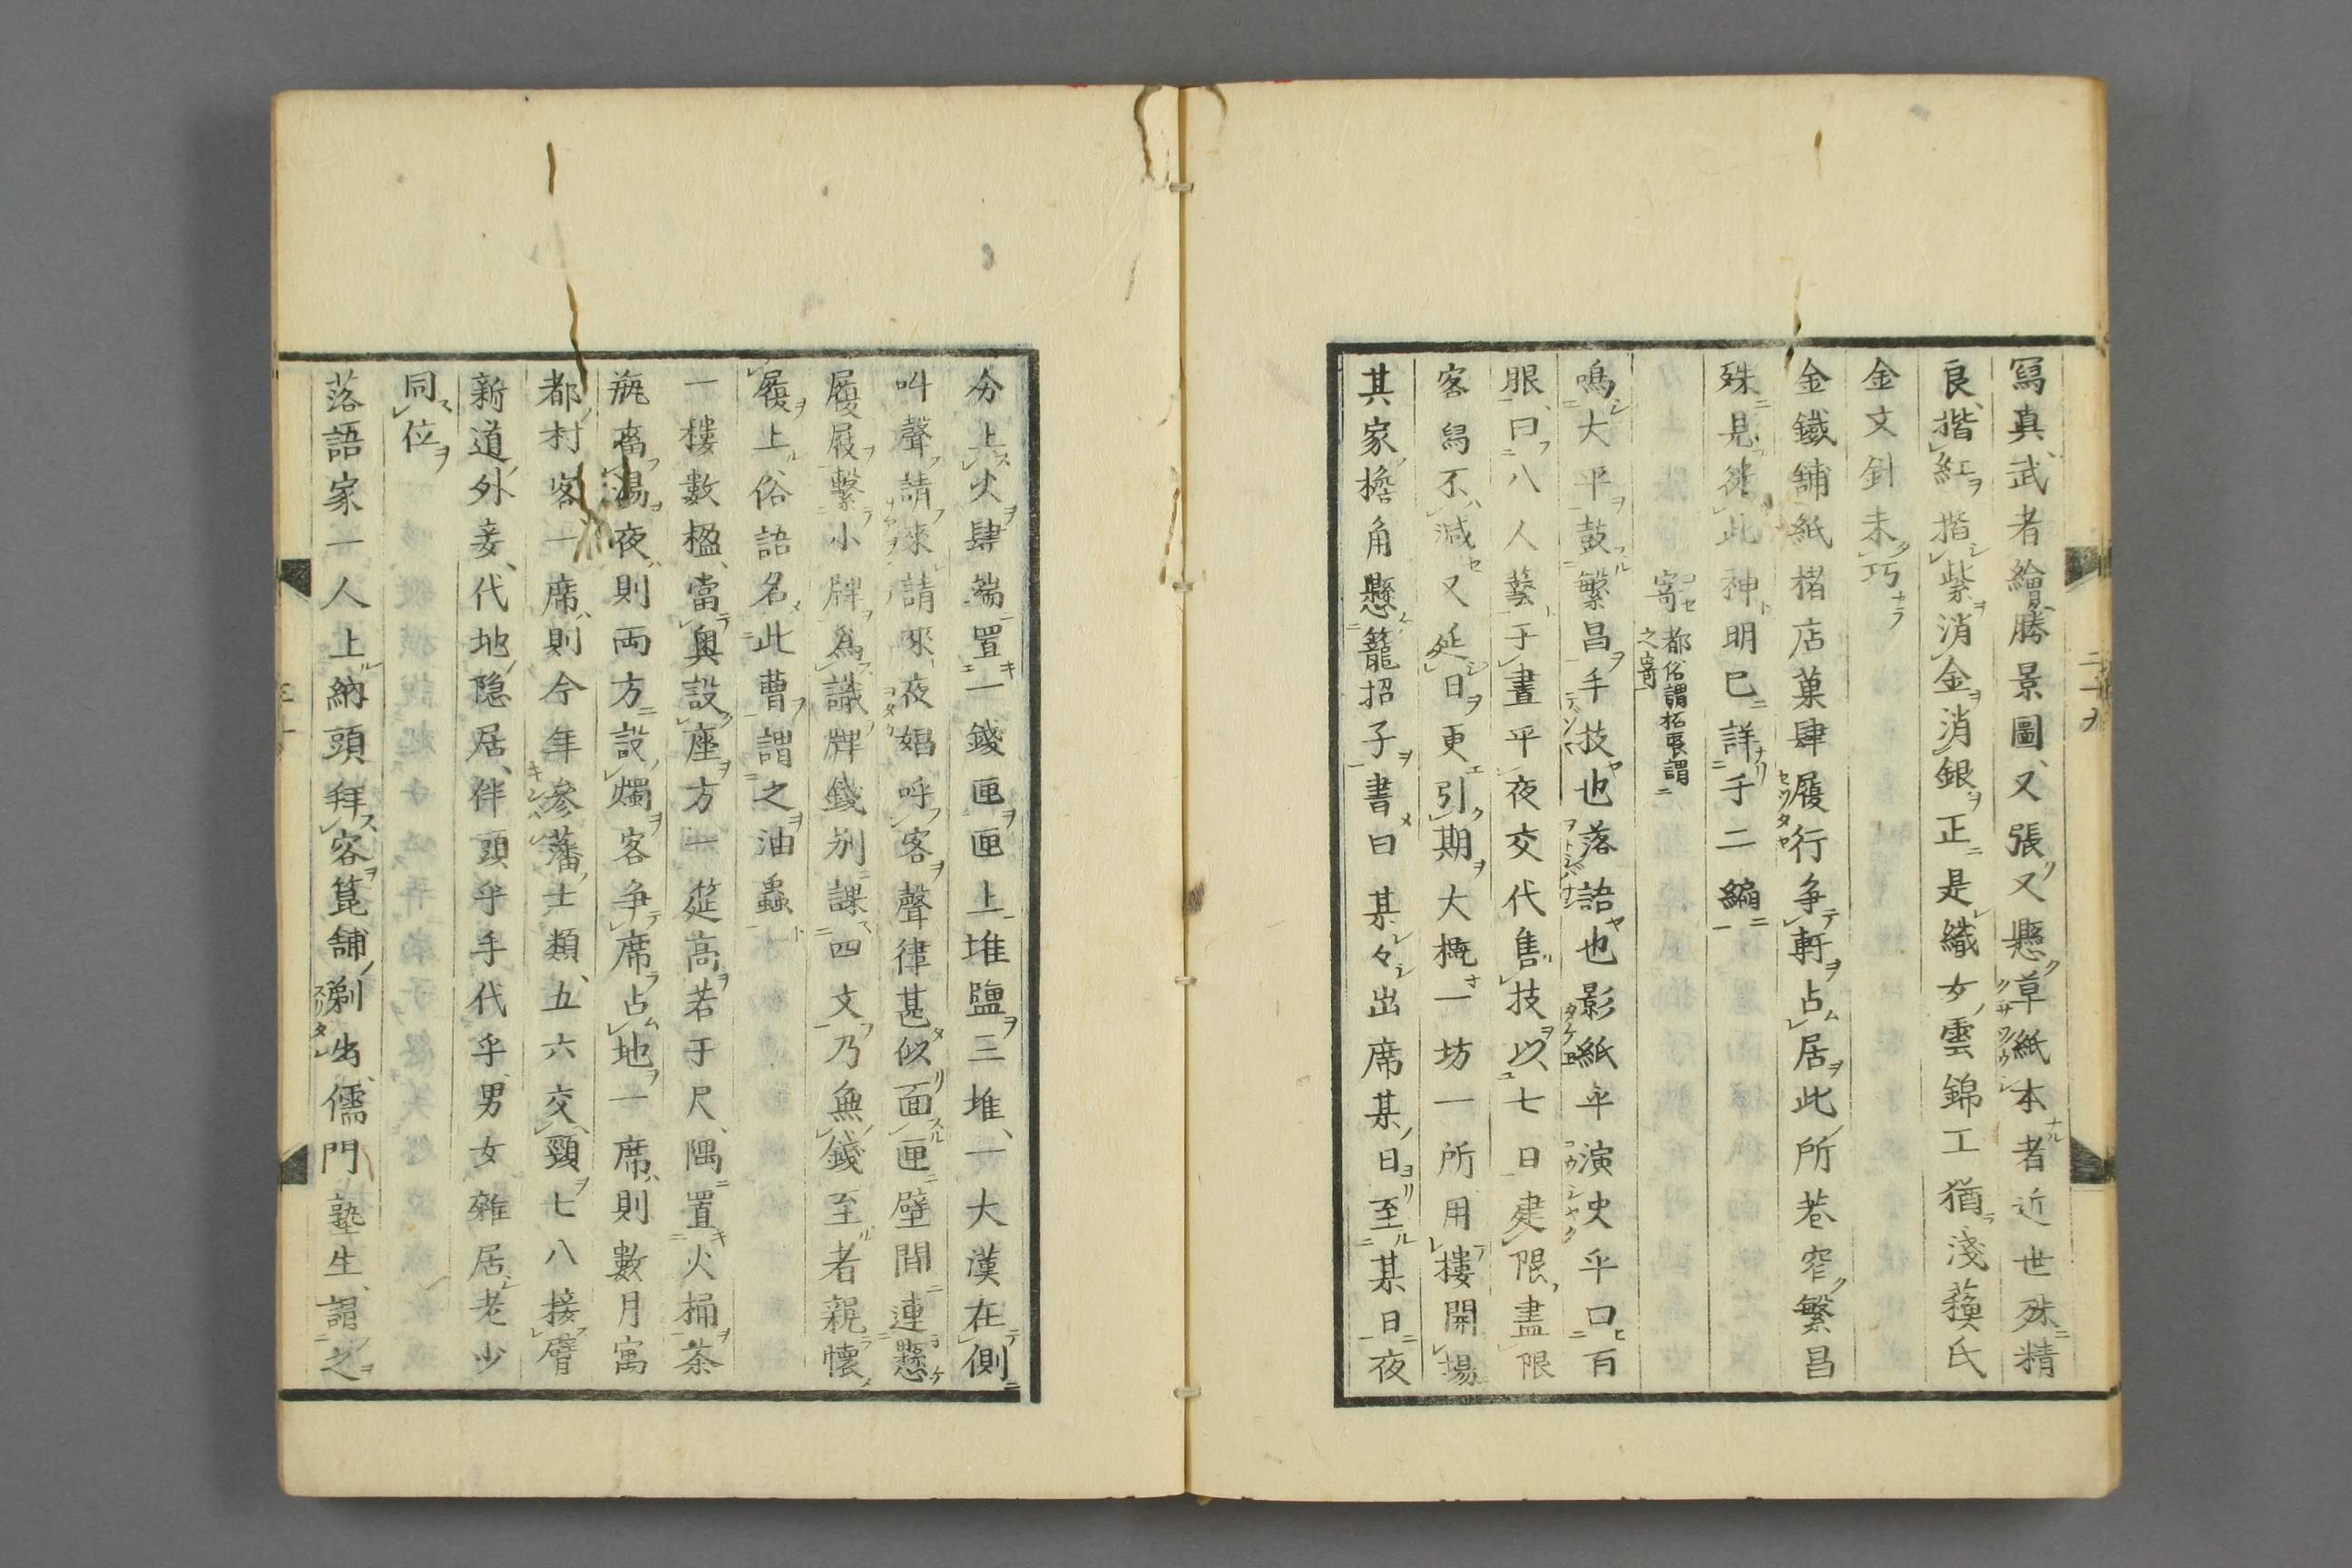 寫真武者繪勝景圖又張又懸草紙本者近世殊精
良揩紅揩紫消金消銀正是織女雲錦工猶淺蘓氏
金文針未巧
金鐵舖紙楮店菓肆履行争軒占居此所巷窄繁昌
殊見從此神明巳詳于二編
寄 都俗謂招要謂之寄
鳴大平鼓繁昌手技也落語也影紙乎演史乎口百
眼曰八人藝于晝乎夜交代售技以七日建限盡限
客舄不減又延日更引期大概一坊一所用樓開場
其家檐角懸籠招子書曰某々出席某日至某日夜
分上火肆端置一錢匣匣上堆鹽三堆一大漢在側
叫聲請來請來夜娼呼客聲律甚似面匣壁間連懸
履屐繫小牌爲識牌錢別課四文乃無錢至者親懷
履上俗語名此曹謂之油蟲
一樓數楹當奥設座方一筵高若于尺隅置火桶茶
瓶蓄湯夜則両方設燭客争席占地一席則數月寓
都村客一席則今年參藩士類五六交頸七八接臂
新道外妾代地隠居伴頭乎手代乎男女雜居老少
同位
落語家一人上納頭拜客篦舖剃出儒門塾生謂之